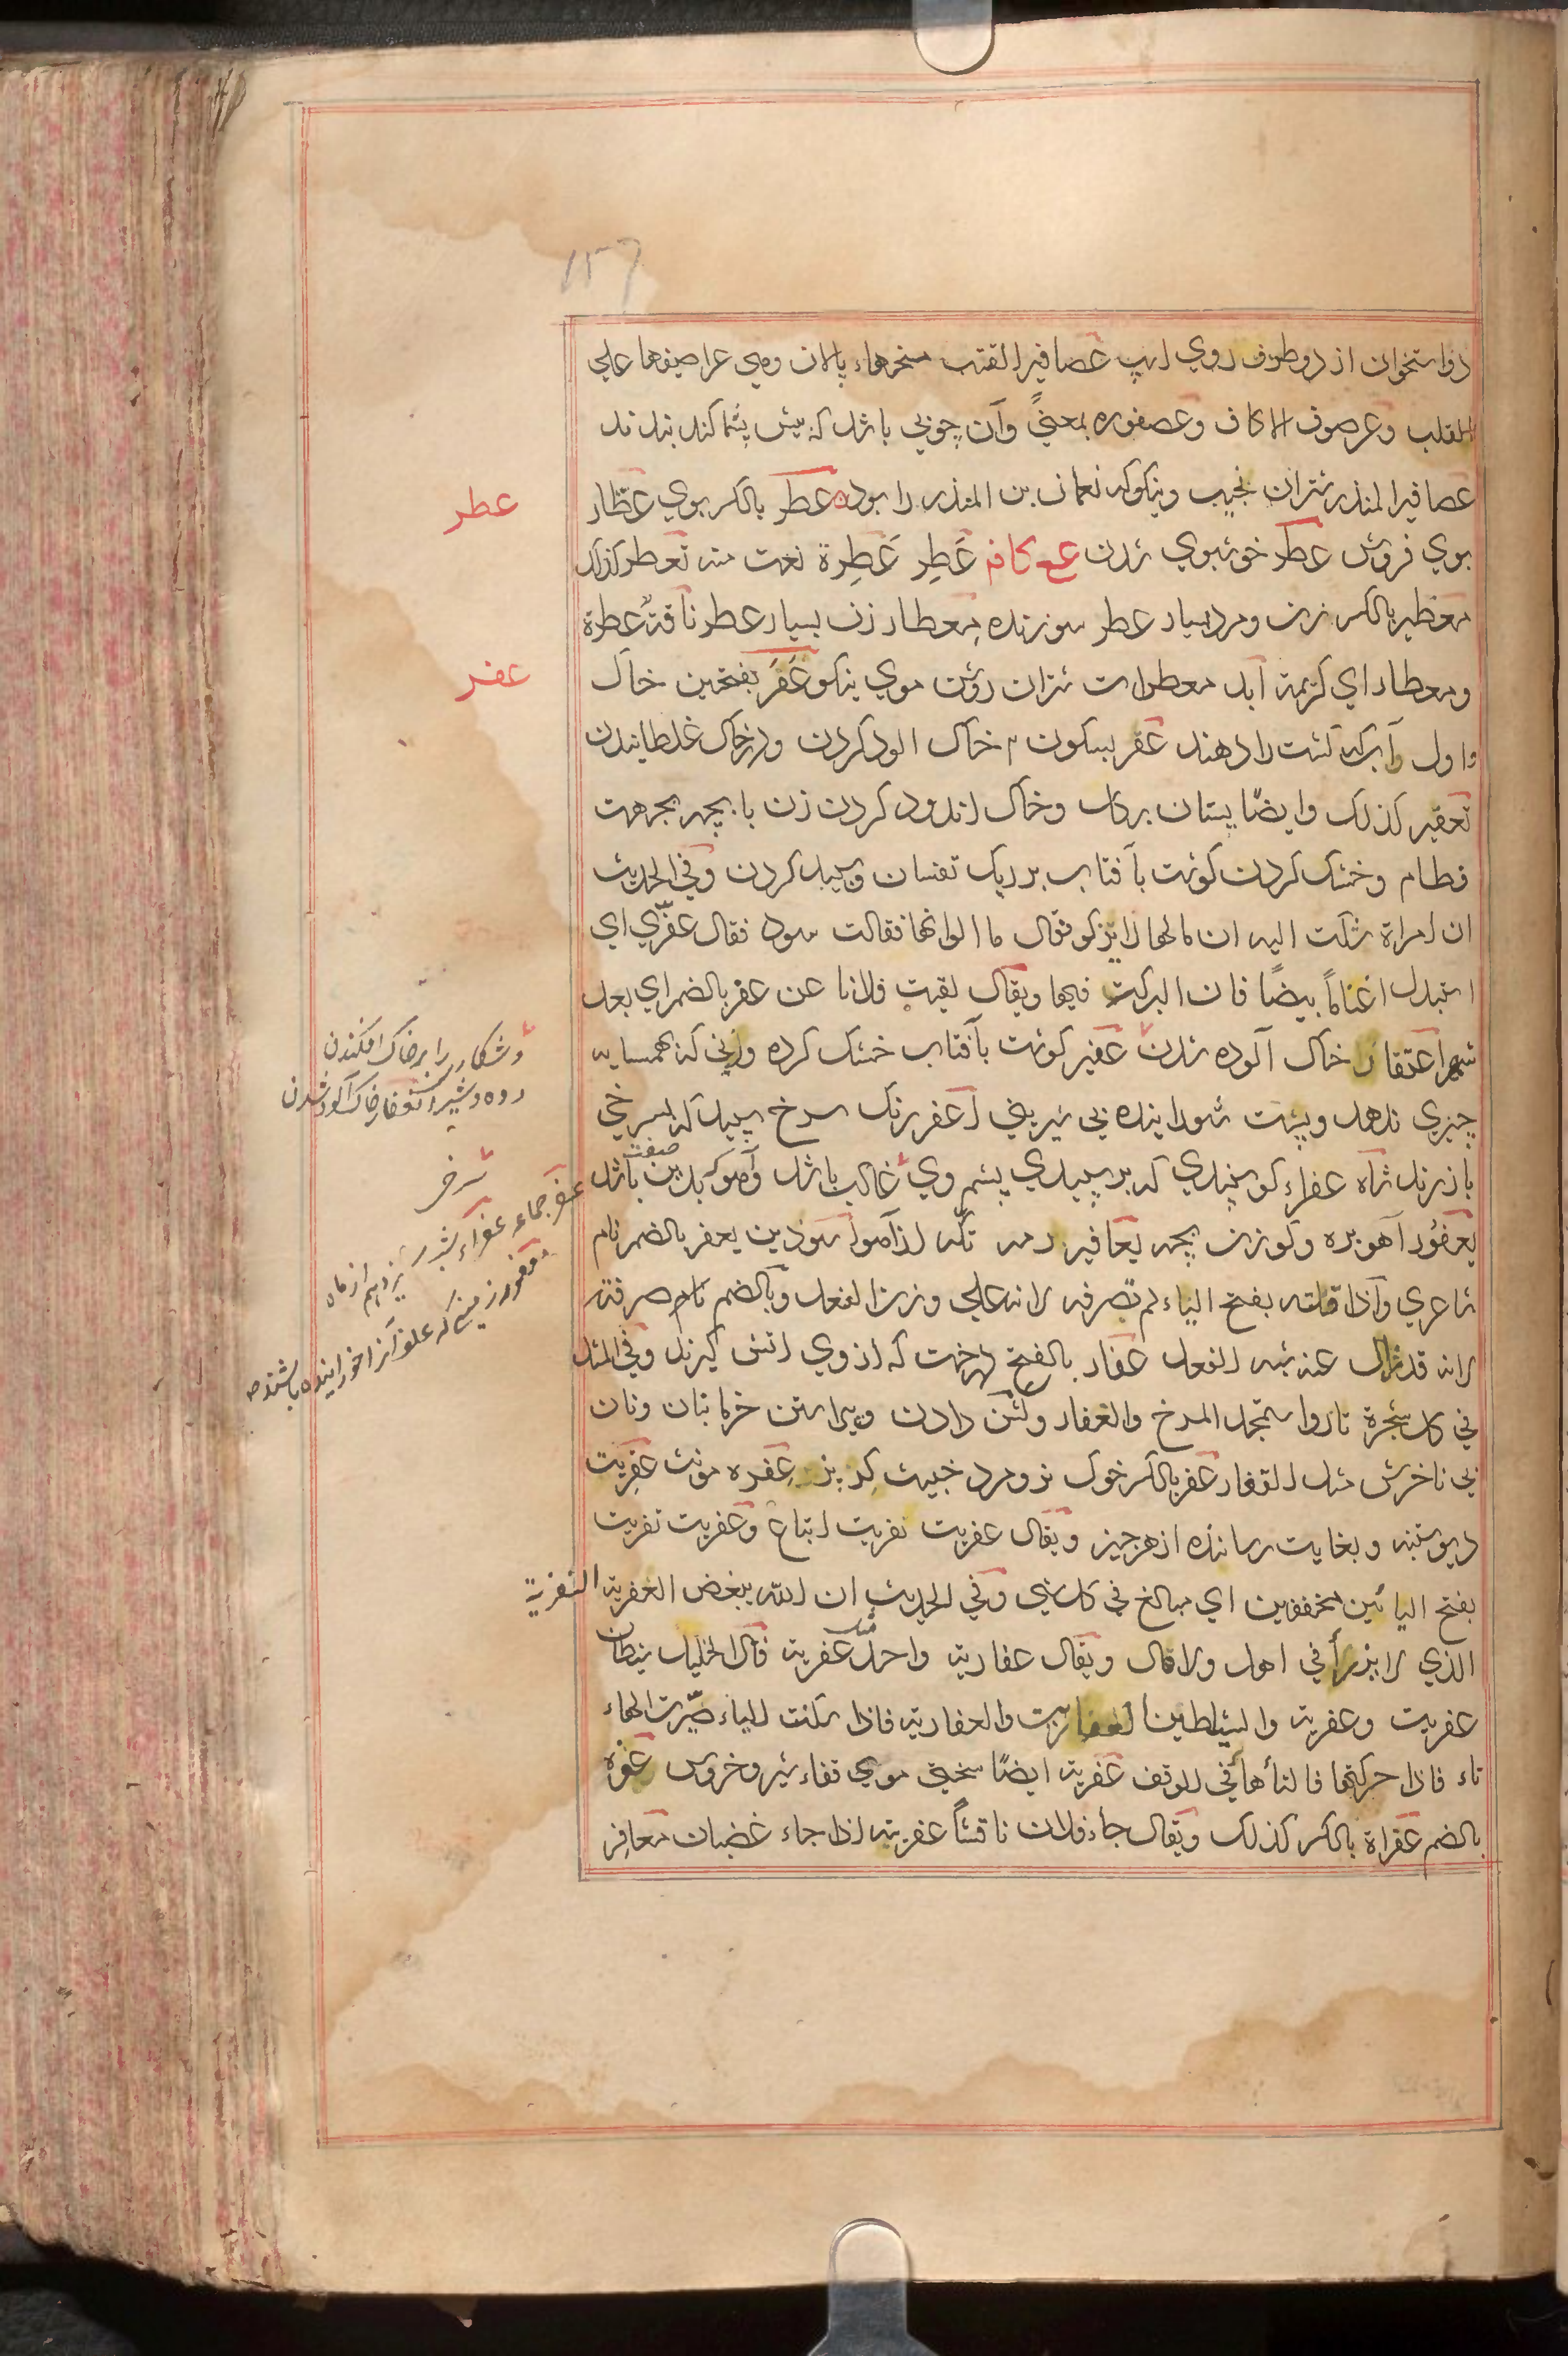 دو استخوان از دو طرف روي اسپ عصافير القتب ميخرهاء پالان وهي عراصيفها علي
القلب وعرصوف الاكاف وعصفوره بمعنىً وآن چوبي باشد كه پيش پشماكند بندند
عصافير المنذر شتران نجيب ونيكو كه نعمان بن المنذر را بوده عطر بالكسر بوي عطّار
بوي فروش عطر خوشبوي شدن ع كا ف عَطِر عَطِرة نعت منه تعطر كذلك
معطير بالكسر زن ومرد بسيار عطر سوزنده معطار زن بسيار عطر ناقةٌ عطرة
ومعطار اي كريمة ابل معطرات شتران روشن موي نيكو عَفَر بفتحتين خاك
واول آب كه كشت را دهند عفر بسكون م خاك الود كردن ودر خاك غلطانيدن
تعفير كذلك وايضًا پستان بر خاك اندود كردن زن با بچه بجهت
فطام وخشك كردن كوشت بآفتاب بر ريك تفسان وسپيد كردن وفي الحديث
ان امراة شكت اليه ان مالها لا يزكو فقال ما الوانها فقالت سود فقال عفّري اي
استبدل اغنامًا بيضًا فان البركت فيها ويقال لقيت فلانا عن عفر بالضم اي بعد
شهر اعتفار خاك آلوده شدن عفير كوشت بآفتاب خشك كرده وزني كه بهمسايه
چيزي ندهد وپشت شوراينده بي شيريني اعفر رنك سرخ سپيد كه بسرخي
باز زند شاة عفراء كوسپندي كه بر سپيدي پشم وي غالب باشد وآهو كه بدين صفت باشد
يعفور آهو بره وكوزن بچه يعافير رمه تكه از آهو اسود بن يعفر بالضم نام
شاعري واذا قلته بفتح الياء لم تصرفه لانه علي وزن الفعل وبالضم نام صرفته
لانه قد زال عنه شبه الفعل عفار بالفتح درخت كه از وي اتش كيرند وفي المثل
في كل شجرة نار واستمجد المرخ والعفار وكشن دادن وپيراستن خرما بنان ونان
بي ناخرش مثل القفار عفر بالكسر خوك نر ومرد خبيث كربز عفره مونث عفريت
ديو ستنبه وبغايت رسانده از هر چيز ويقال عفريت نفريت اتباع وعفريت نفريت
بفتح اليائين مخففين اي مبالغ في كل شي وفي الحديث ان الله يبغض العفرية النفرية
الذي لا يرزأ في اهل ولا مال ويقال عفارية واحد مثل عفرية قال الخليل شيطان
عفريت وعفرية والشياطين العفاريت والعفارية فاذا سكنت الياء صيّرت الهاء
تاء فاذا حركتها فالتاء هاء في الوقف عفرية ايضًا سختي موي قفاء شير وخروس عفره
بالضم عفراة بالكسر كذلك ويقال جاء فلان ناقشًا عفريته اذا جاء غضبان معافر
عطر
عفر
وشكار را بر خاك افكندن
ده وشير تعفر خاك آلود شدن
شرخ
عفر جماعه عفراء شب سيزدهم از ماه
معفور زميني كه علف آنرا خورانيده باشند صح